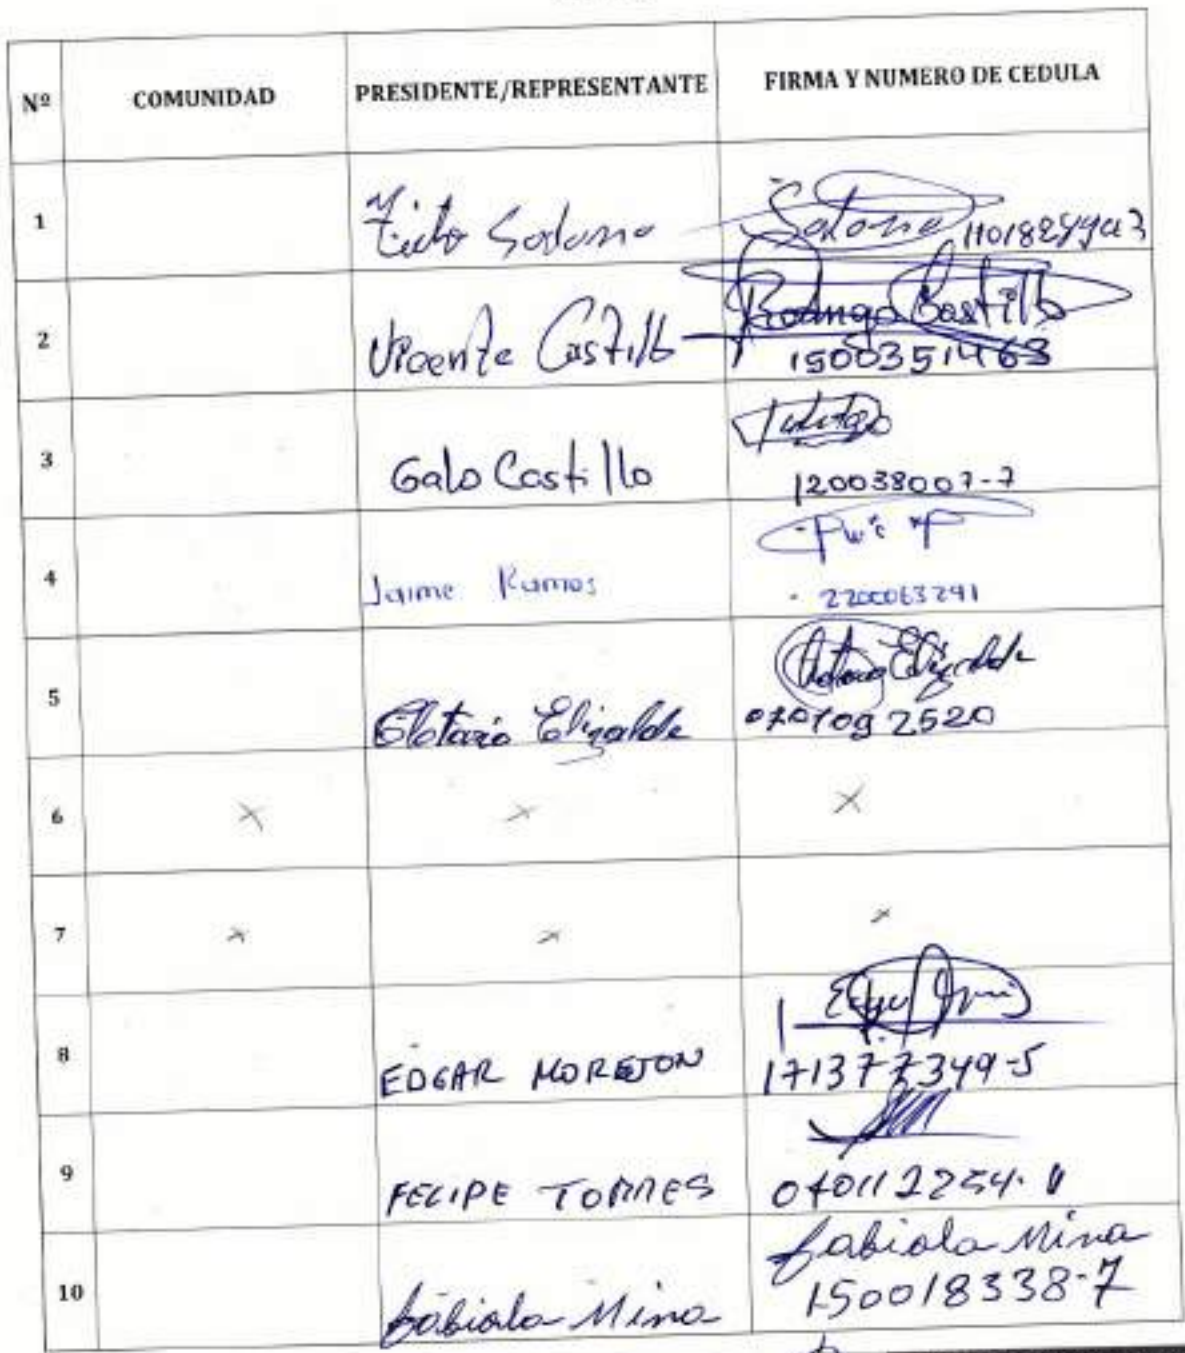 Nº COMUNIDAD PRESIDENTE/REPRESENTANTE FIRMA Y NUMERO DE CEDULA
1
2 Vicente Castillo Rodrigo Castillo
1500351463
3 Galo Castillo
120038007-7
4 Jaime Ramos
2200063291
5 Clotario Elizalde Clotario Elizalde
0701092520
6 X X X
7 X X X
8 EDGAR MOREJON
171377349-5
9 FELIPE TORRES
10 Fabiola Mina fabiola Mina
150018338-7